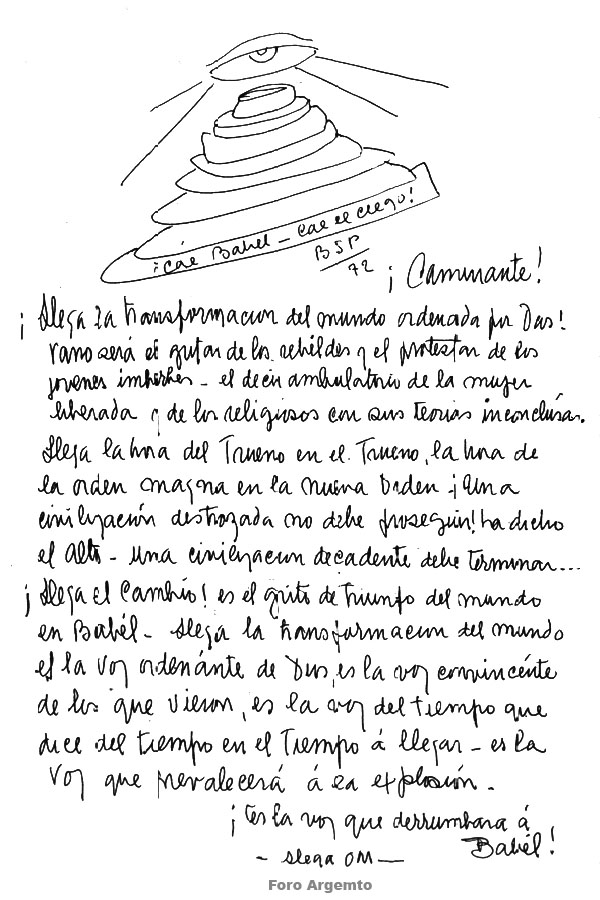 ¡Cae Babel - Cae el ciego!
BSP
72
¡Caminante!
¡Llega la transformacion del mundo ordenada por Dios!
vano será el gritar de los rebeldes y el protestar de los
jovenes imberbes - el decir ambulatorio de la mujer
liberada y de los religiosos con sus teorias inconclusas.
Llega la hora del Trueno en el Trueno, la hora de
la orden magna en la nueva Orden - ¡Una
civilización destrozada no debe proseguir! ha dicho
el Alto - una civilizacion decadente debe terminar...
¡Llega el Cambio! es el grito de triunfo del mundo
en Babél - Llega la transformacion del mundo
es la voz ordenánte de Dios, es la voz convincénte
de los que vieron, es la voz del tiempo que
dice del tiempo en el Tiempo á llegar - es la
voz que prevalecerá á la explosión.
¡es la voz que derrumbara á
Babél!
- llega OM -
Foro Argemto